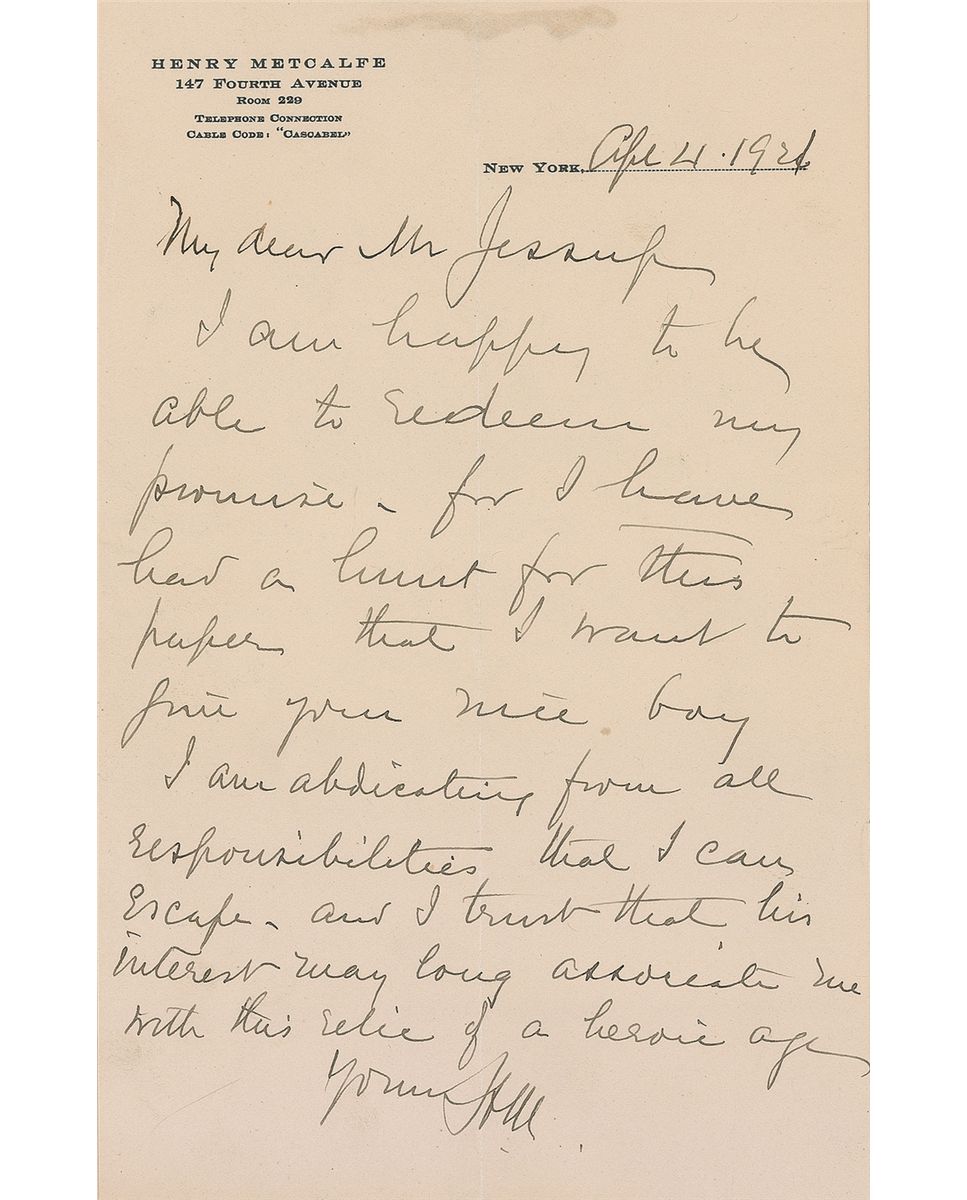 HENRY METCALFE
147 FOURTH AVENUE
ROOM 229
TELEPHONE CONNECTION
CABLE CODE: "CASCABEL"
NEW YORK, Apl 4. 192
My dear Mr Jessup
I am happy to be
able to redeem my
promise - for I have
had a hunt for this
paper that I want to
give your nice boy
I am abdicating from all
responsibilities that I can
Escape - and I trust that his
interest may long associate me
with this relic of a heroic age
Yours HM